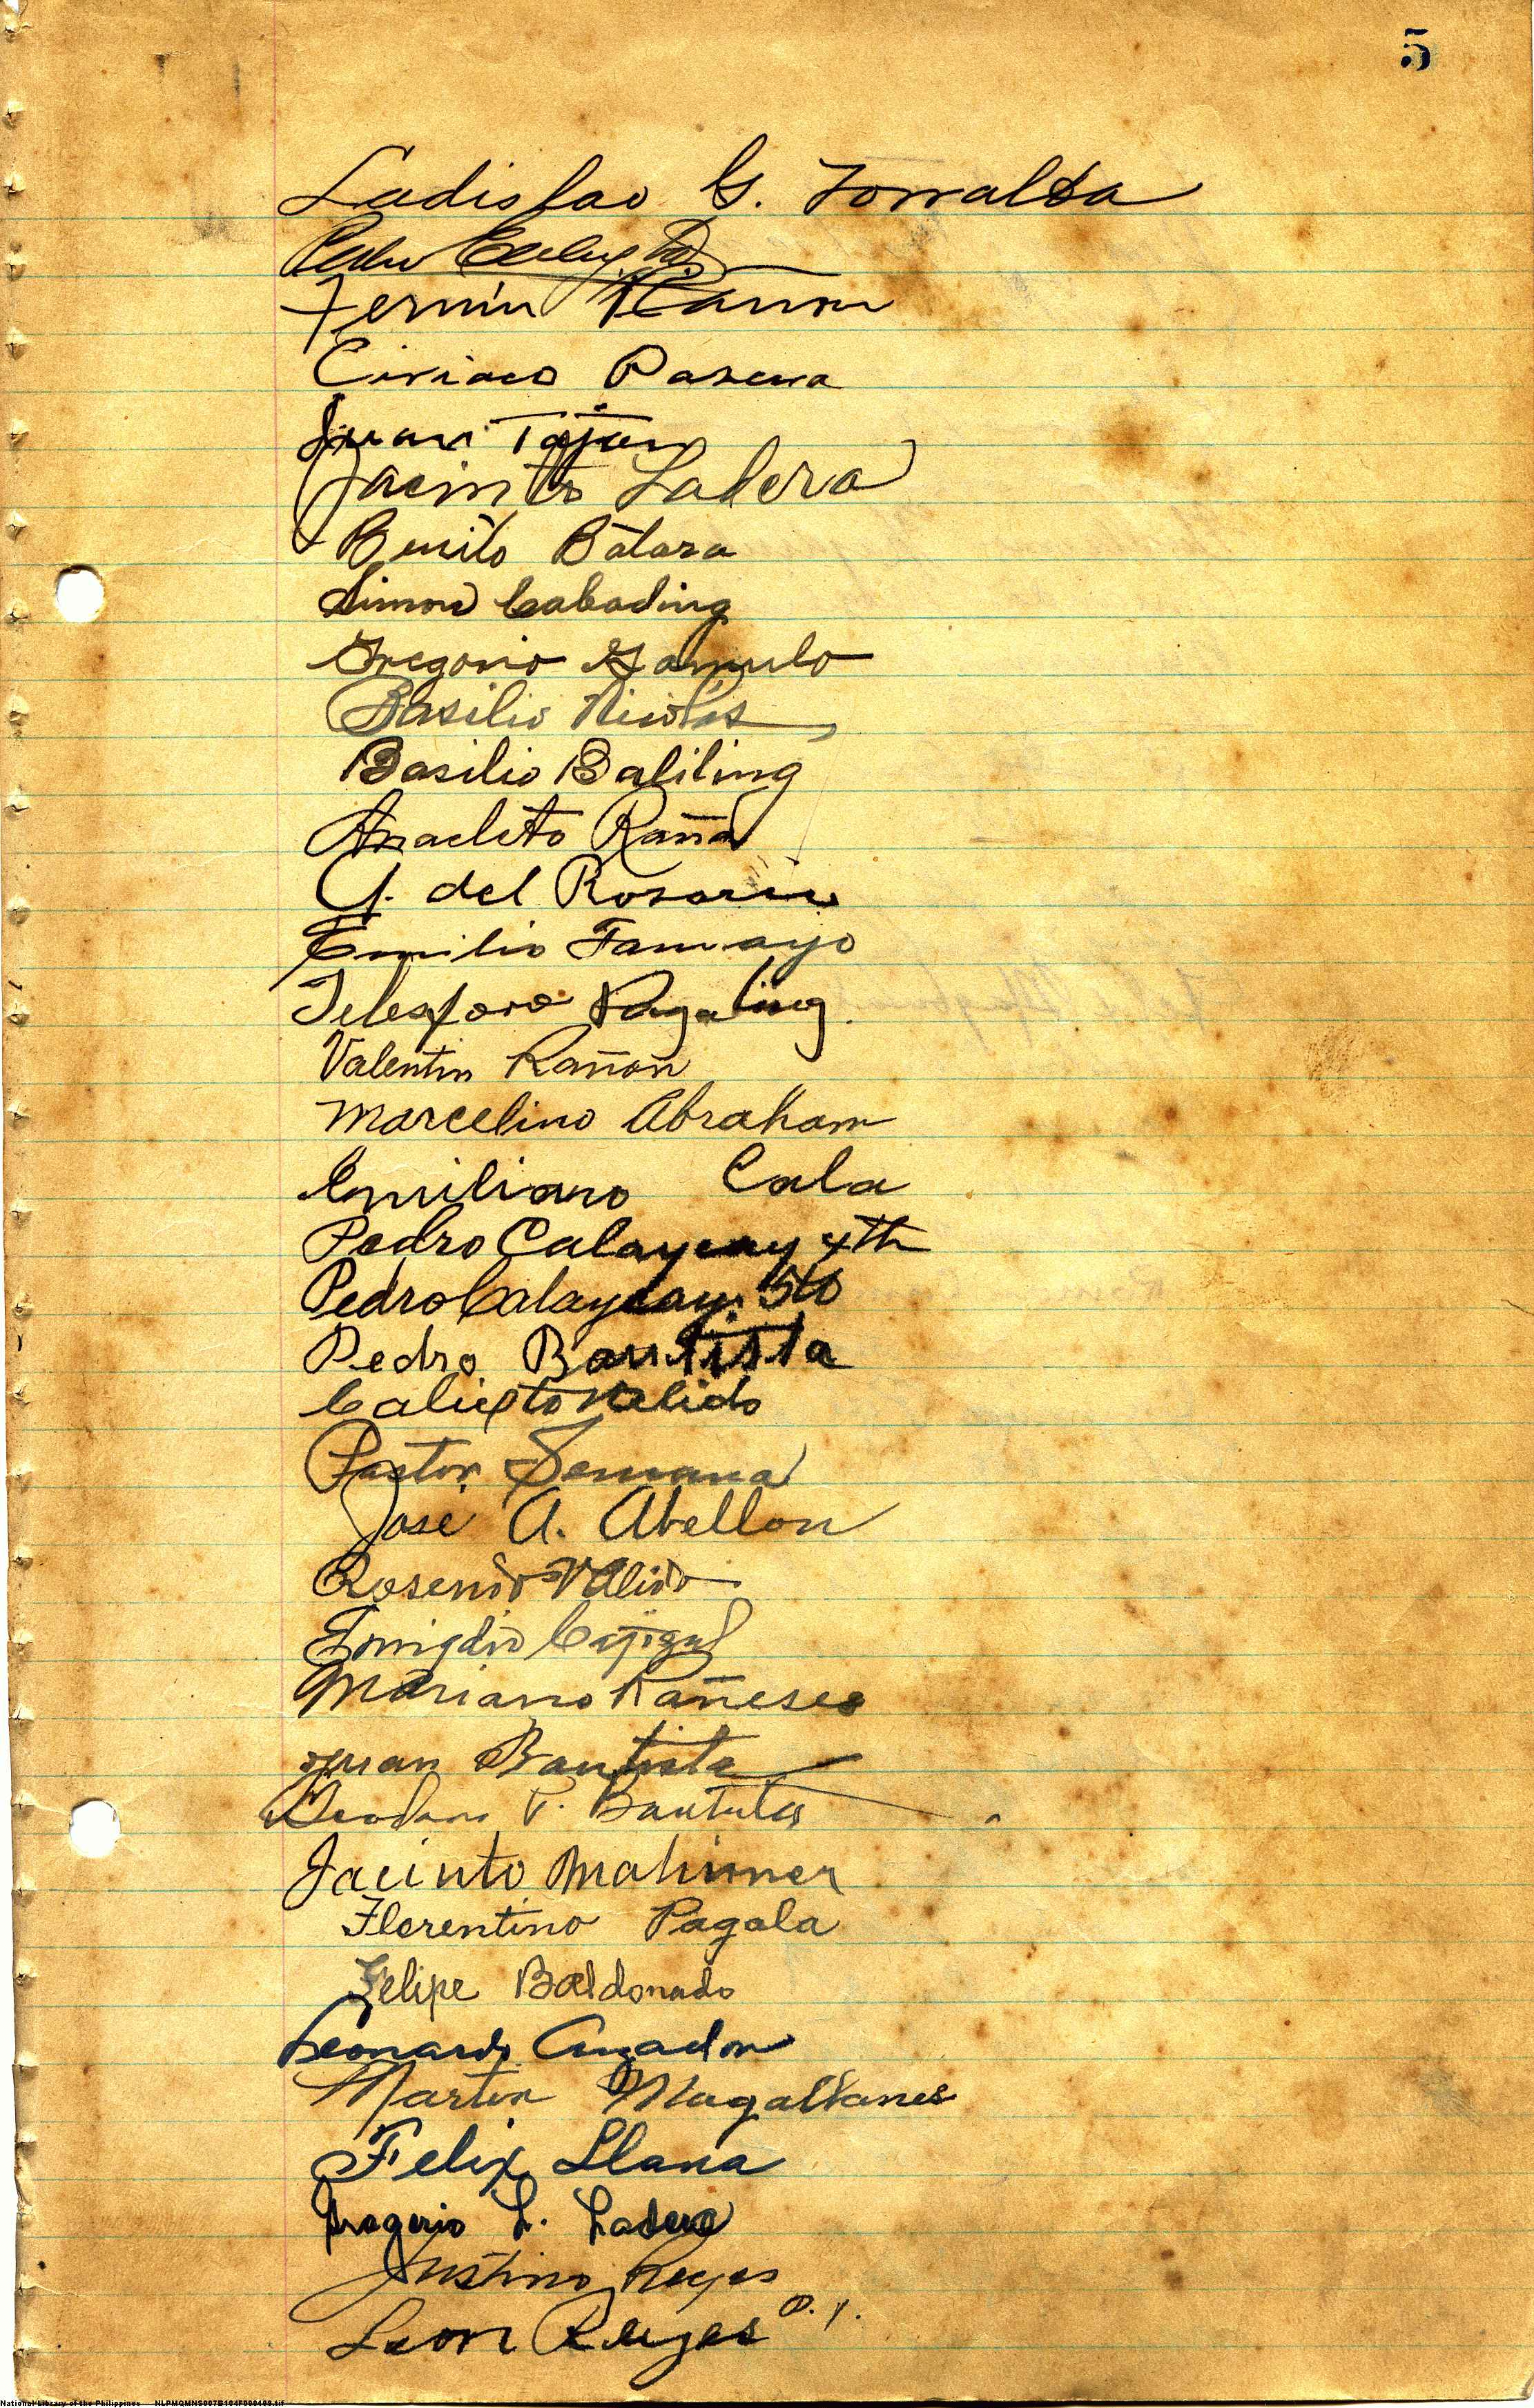 5
Ladislao G. Torralba
Pedro
Fermin Ramon
Ciriaco Pascua
Juan Tajon
Jacinto Ladera
Benito Batara
Simon Cabading
Gregorio Gamulo
Basilio Nicolas
Basilio Baliling
Anacleto Raña
G. del Rosario
Emilio Tamayo
Telesforo Pagaling.
Valentin Rañon
Marcelino Abraham
Emiliano Cala
Pedro Calaycay 4th
Pedro Calaycay. 5to
Pedro Bautista
Calixto Velido
Pastor Semana
José A. Abellon
Rosendo
Emigdio Cajigal
Mariano Rañeses
Juan Bautista
P. Bautista
Jacinto Mahimer
Florentino Pagala
Felipe Baldonado
Leonardo
Martin Magallanes
Felix Llana
L. Ladera
Justino Reyes
Leon Reyes
National Library of the Philippines NLPMQMNS007B104F000488.tif